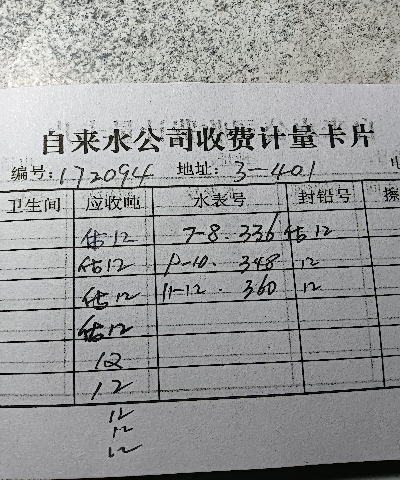 自来水公司收费计量卡片
编号:172094 地址:3-401 电
卫生间 应收吨 水表号 封铅号 擦
估12 7-8. 336 估12
估12 9-10. 348 12
估12 11-12. 360 12
估12
12
12
12
12
12